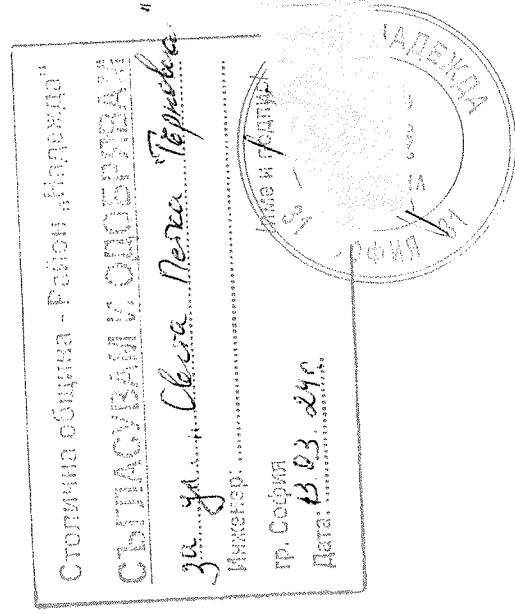 Столична община - Район „Надежда"
СЪГЛАСУВАМ И ОДОБРЯВАМ
за ул. „Света Петка Търновска"
Инженер:
име и подпис
гр. София
Дата: 13.03.24г.
НАДЕЖДА
СОФИЯ